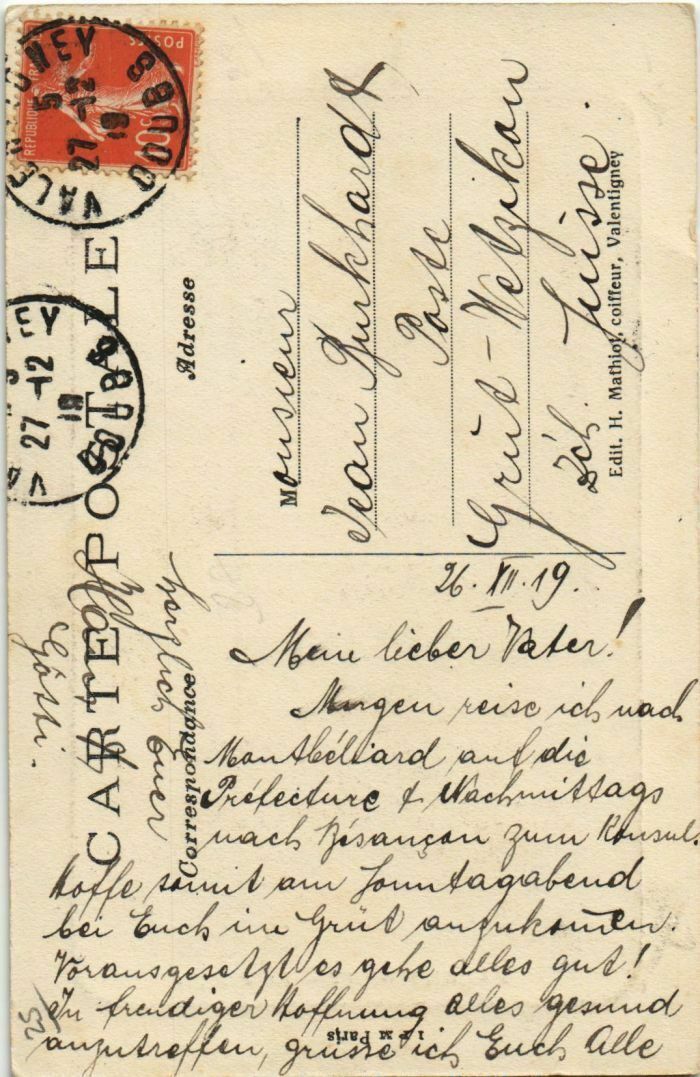 CARTE POSTALE
Correspondance
Adresse
RÉPUBLIQUE
POSTES
10c
VALENTIGNEY
DOUBS
5
27-12
19
EY
27-12
19
DOUBS
Monsieur
Jean Burkhardt
Poste
Grüt-Wetzikon
Zch. Suisse.
Edit. H. Mathiot, coiffeur, Valentigney
26. XII. 19.
Mein lieber Vater!
Morgen reise ich nach
Montbéliard auf die
Préfecture & Nachmittags
nach Bésançon zum Konsul.
Hoffe somit am Sonntagabend
bei Euch im Grüt anzukommen.
Vorausgesetzt es gehe alles gut!
In freudiger Hoffnung alles gesund
anzutreffen, grüsse ich Euch Alle
herzlich Euer
Götti.
Paris
25